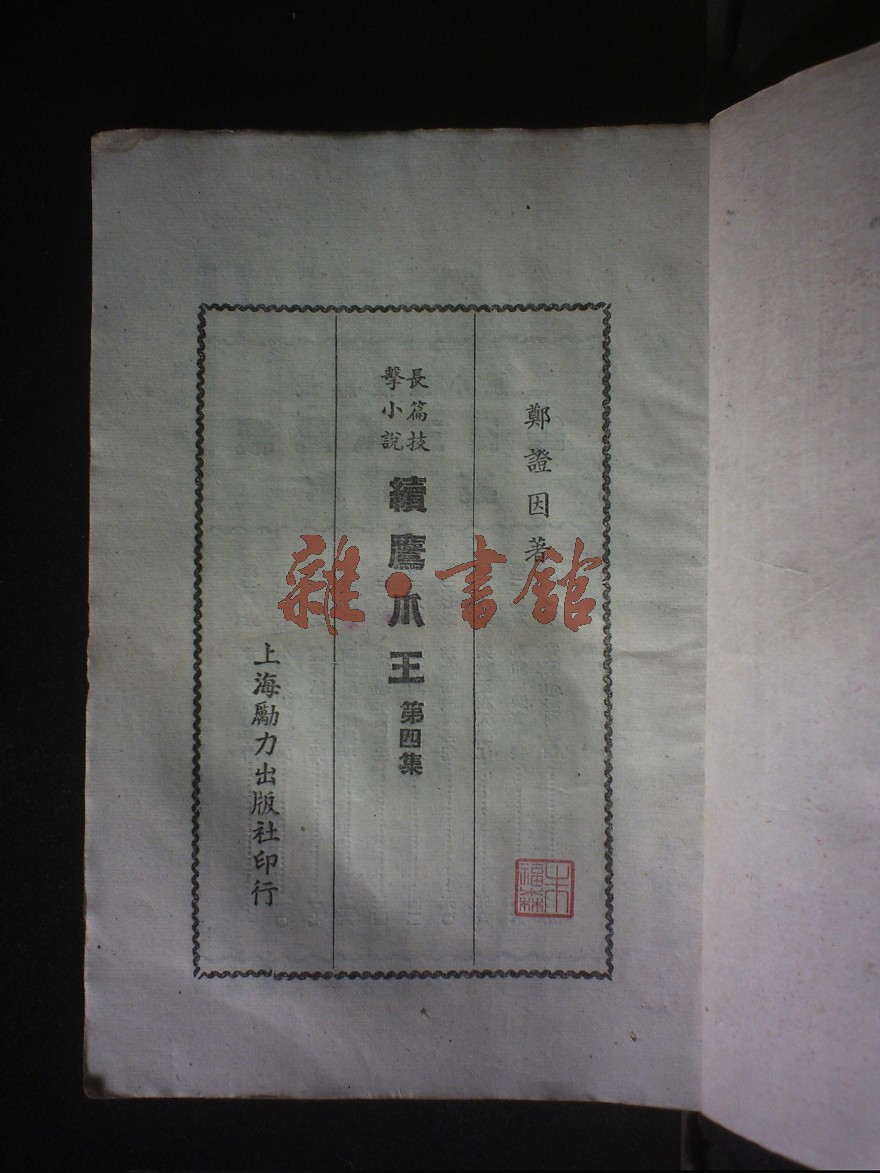 鄭證因著
長篇技
擊小說
續鷹爪王 第四集
上海勵力出版社印行
雜·書館